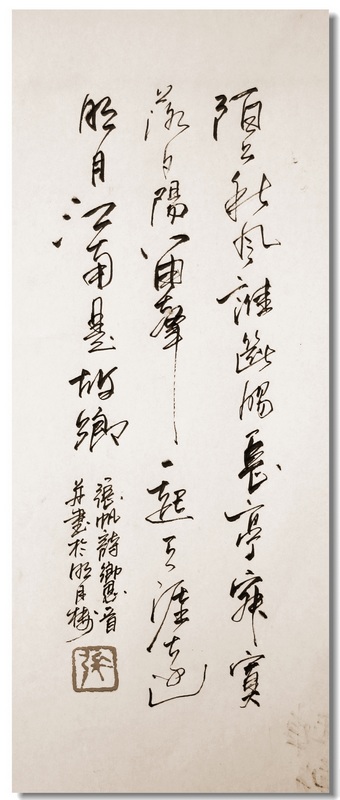 陌上秋風誰斷腸長亭寂寞
落夕陽笛聲一起天涯遠
明月江南是故鄉
張帆詩鄉思首
并書於明月樓
張